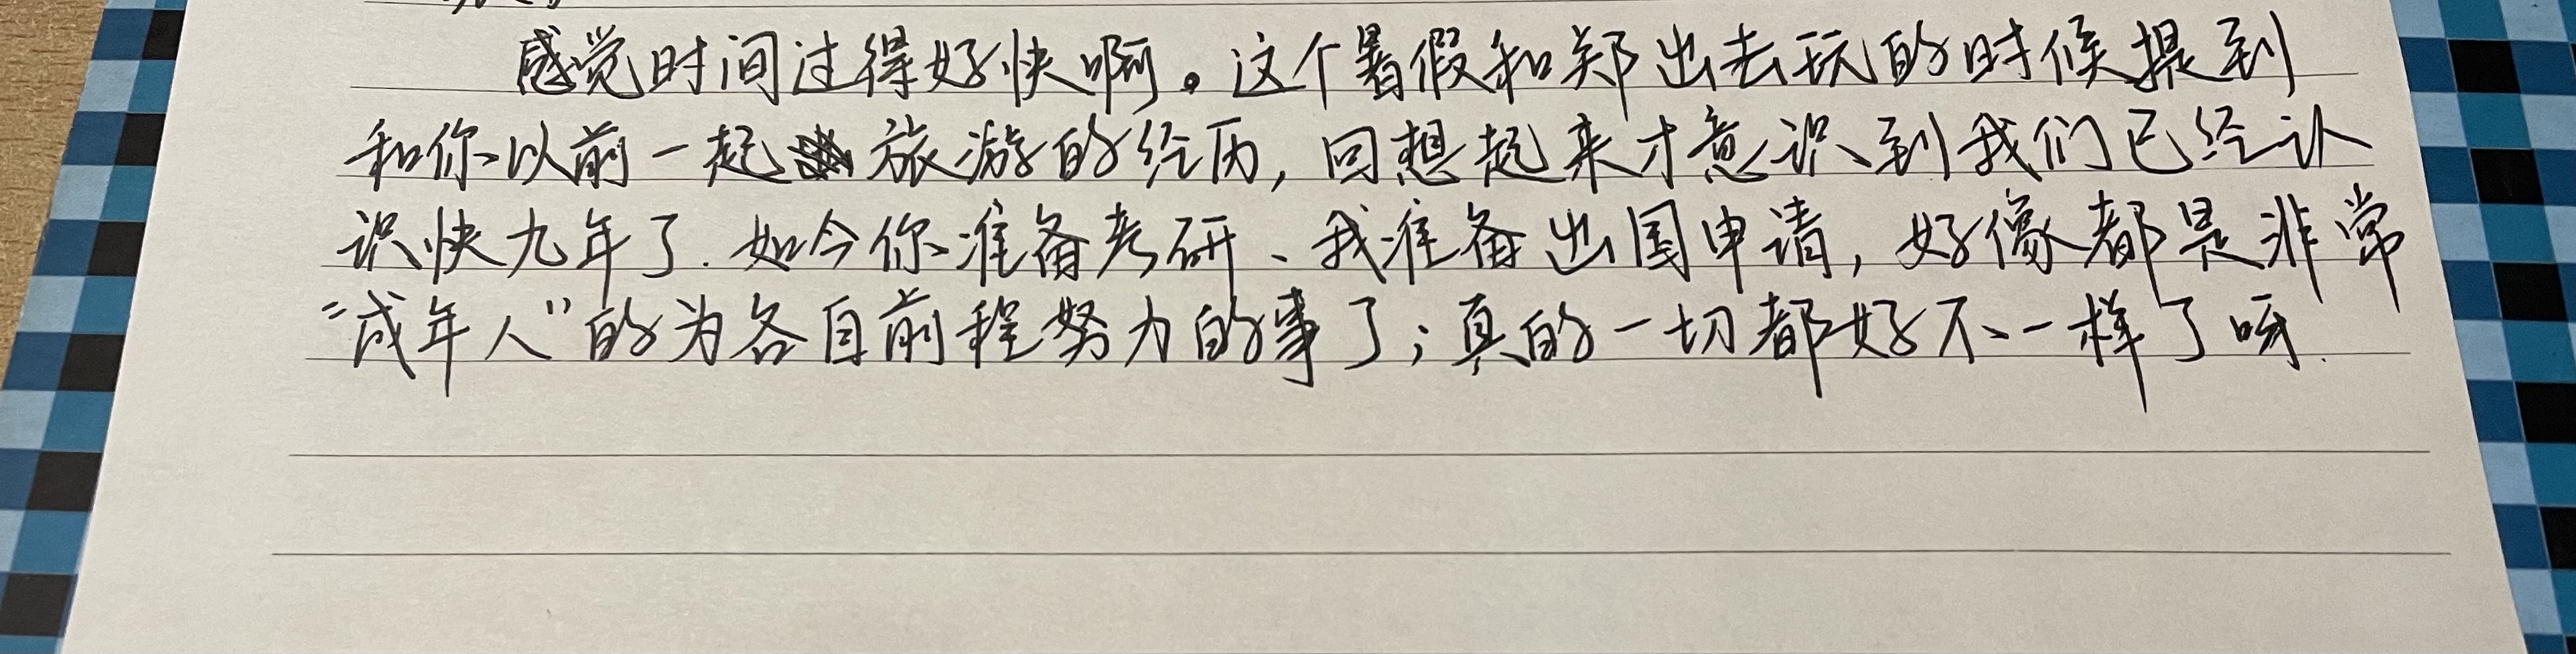 感觉时间过得好快啊。这个暑假和郑出去玩的时候提到
和你以前一起旅游的经历,回想起来才意识到我们已经认
识快九年了.如今你准备考研、我准备出国申请,好像都是非常
“成年人”的为各自前程努力的事了;真的一切都好不一样了呀.